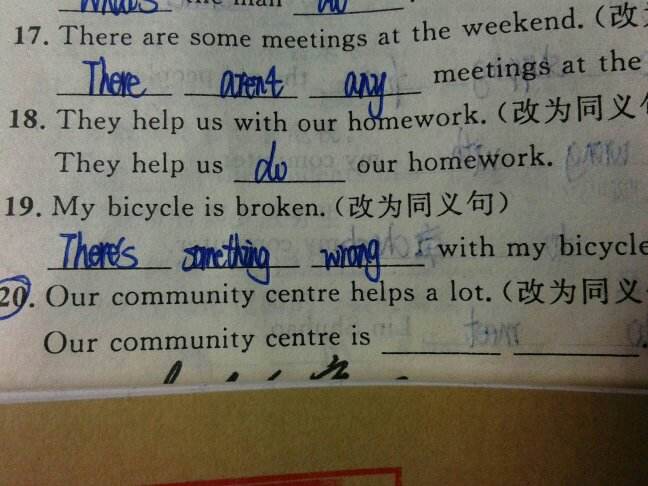 the man do.
17. There are some meetings at the weekend. (改
There aren't any meetings at the
18. They help us with our homework. (改为同义
They help us do our homework.
19. My bicycle is broken. (改为同义句)
There's something wrong with my bicycle
20. Our community centre helps a lot. (改为同义
Our community centre is